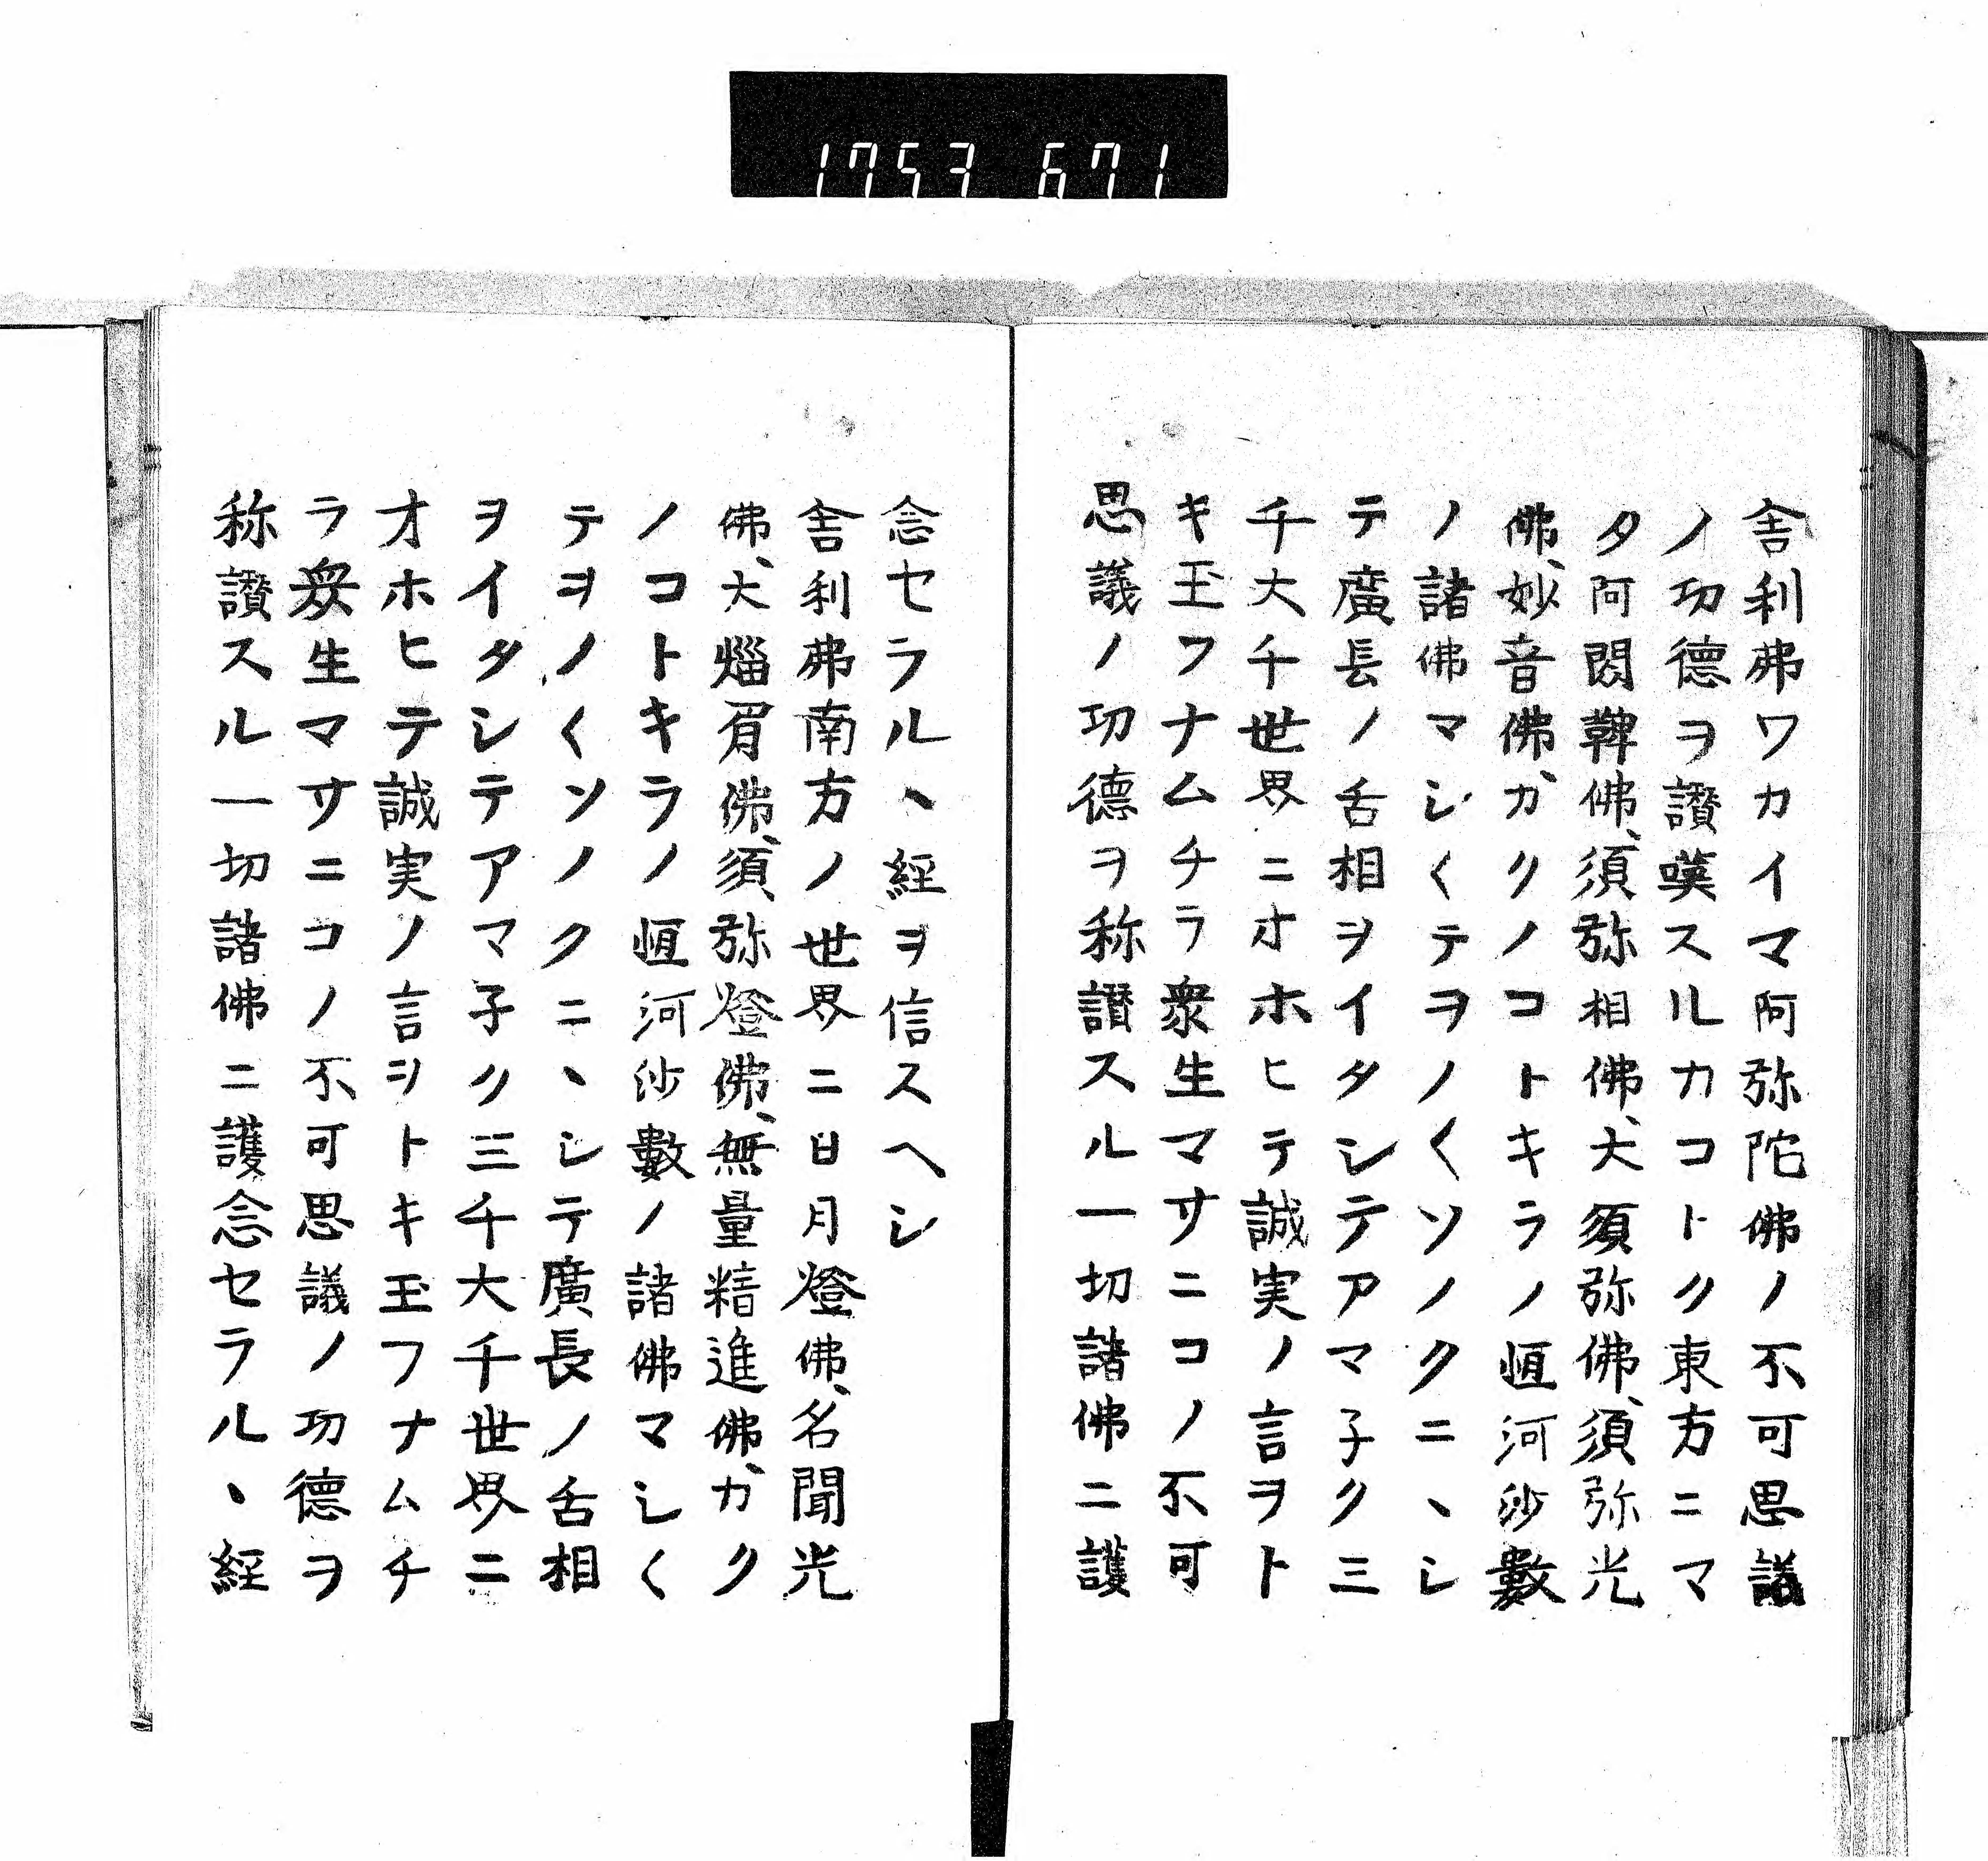 1753 671
舎利弗ワカイマ阿弥陀佛ノ不可思議
ノ功德ヲ讃嘆スルカコトク東方ニマ
タ阿閦鞞佛、須弥相佛、大須弥佛、須弥光
佛、妙音佛、カクノコトキラノ恒河沙數
ノ諸佛マシ〱テヲノ〱ソノクニヽシ
テ廣長ノ舌相ヲイタシテアマ子ク三
千大千世界ニオホヒテ誠実ノ言ヲト
キ玉フナムチラ衆生マサニコノ不可
思議ノ功德ヲ称讃スル一切諸佛ニ護
念セラルヽ經ヲ信スヘシ
舎利弗南方ノ世界ニ日月燈佛、名聞光
佛、大焰肩佛、須弥燈佛、無量精進佛、カク
ノコトキラノ恒河沙數ノ諸佛マシ〱
テヲノ〱ソノクニヽシテ廣長ノ舌相
ヲイタシテアマ子ク三千大千世界ニ
オホヒテ誠実ノ言ヲトキ玉フナムチ
ラ衆生マサニコノ不可思議ノ功德ヲ
称讃スル一切諸佛ニ護念セラルヽ經